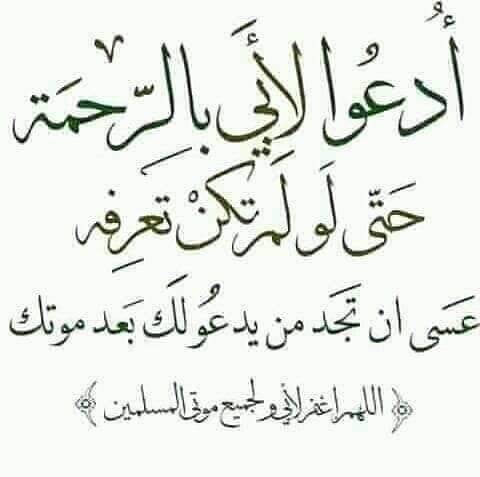 أُدعُوا لأَبي بالرَّحمَة
حَتّى لَو لَم تكنْ تَعرِفه
عَسَى ان تَجَد من يدعُو لَكَ بَعد موتك
﴿ اللهم اغفر لأبي ولجميع موتى المسلمين ﴾